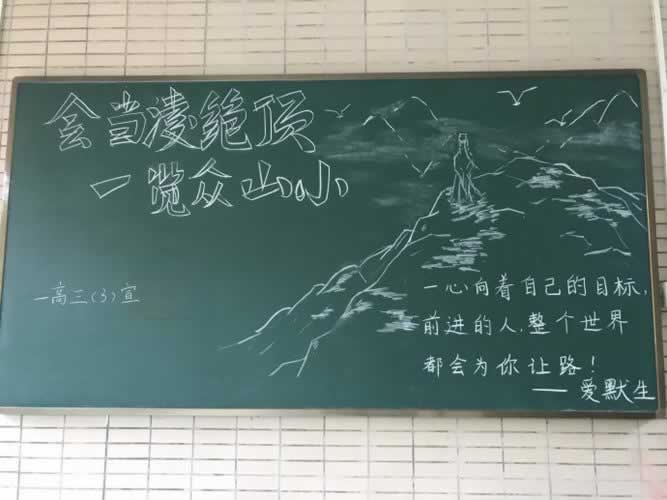 会当凌绝顶
一览众山小
一高三(3)宣
一心向着自己的目标,
前进的人,整个世界
都会为你让路!
——爱默生